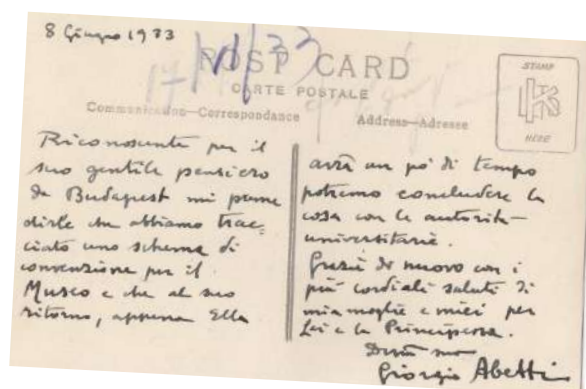 8 Giugno 1933
POST CARD
CARTE POSTALE
Communication—Correspondance
Address—Adresse
STAMP
HERE
Riconoscente per il
suo gentile pensiero
da Budapest mi preme
dirle che abbiamo trac=
ciato uno schema di
convenzione per il
Museo e che al suo
ritorno, appena Ella
avrà un pò di tempo
potremo concludere la
cosa con le autorità
universitarie.
Grazie di nuovo con i
più cordiali saluti di
mia moglie e miei per
Lei e la Principessa.
Giorgio Abetti